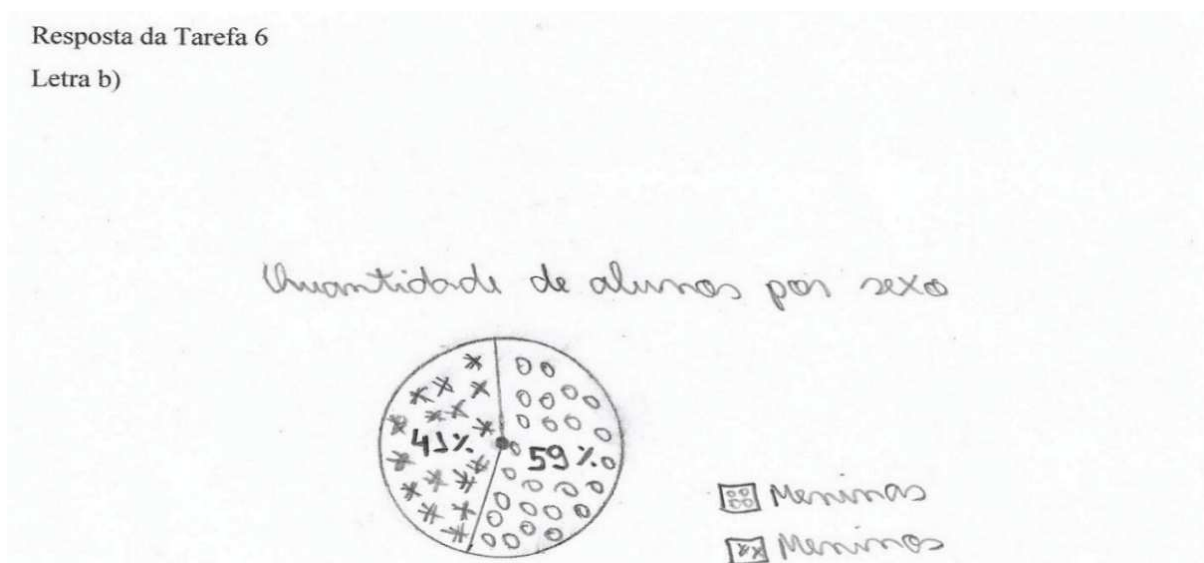 Resposta da Tarefa 6
Letra b)
Quantidade de alunos por sexo
41% 59%
Meninas
Meninos